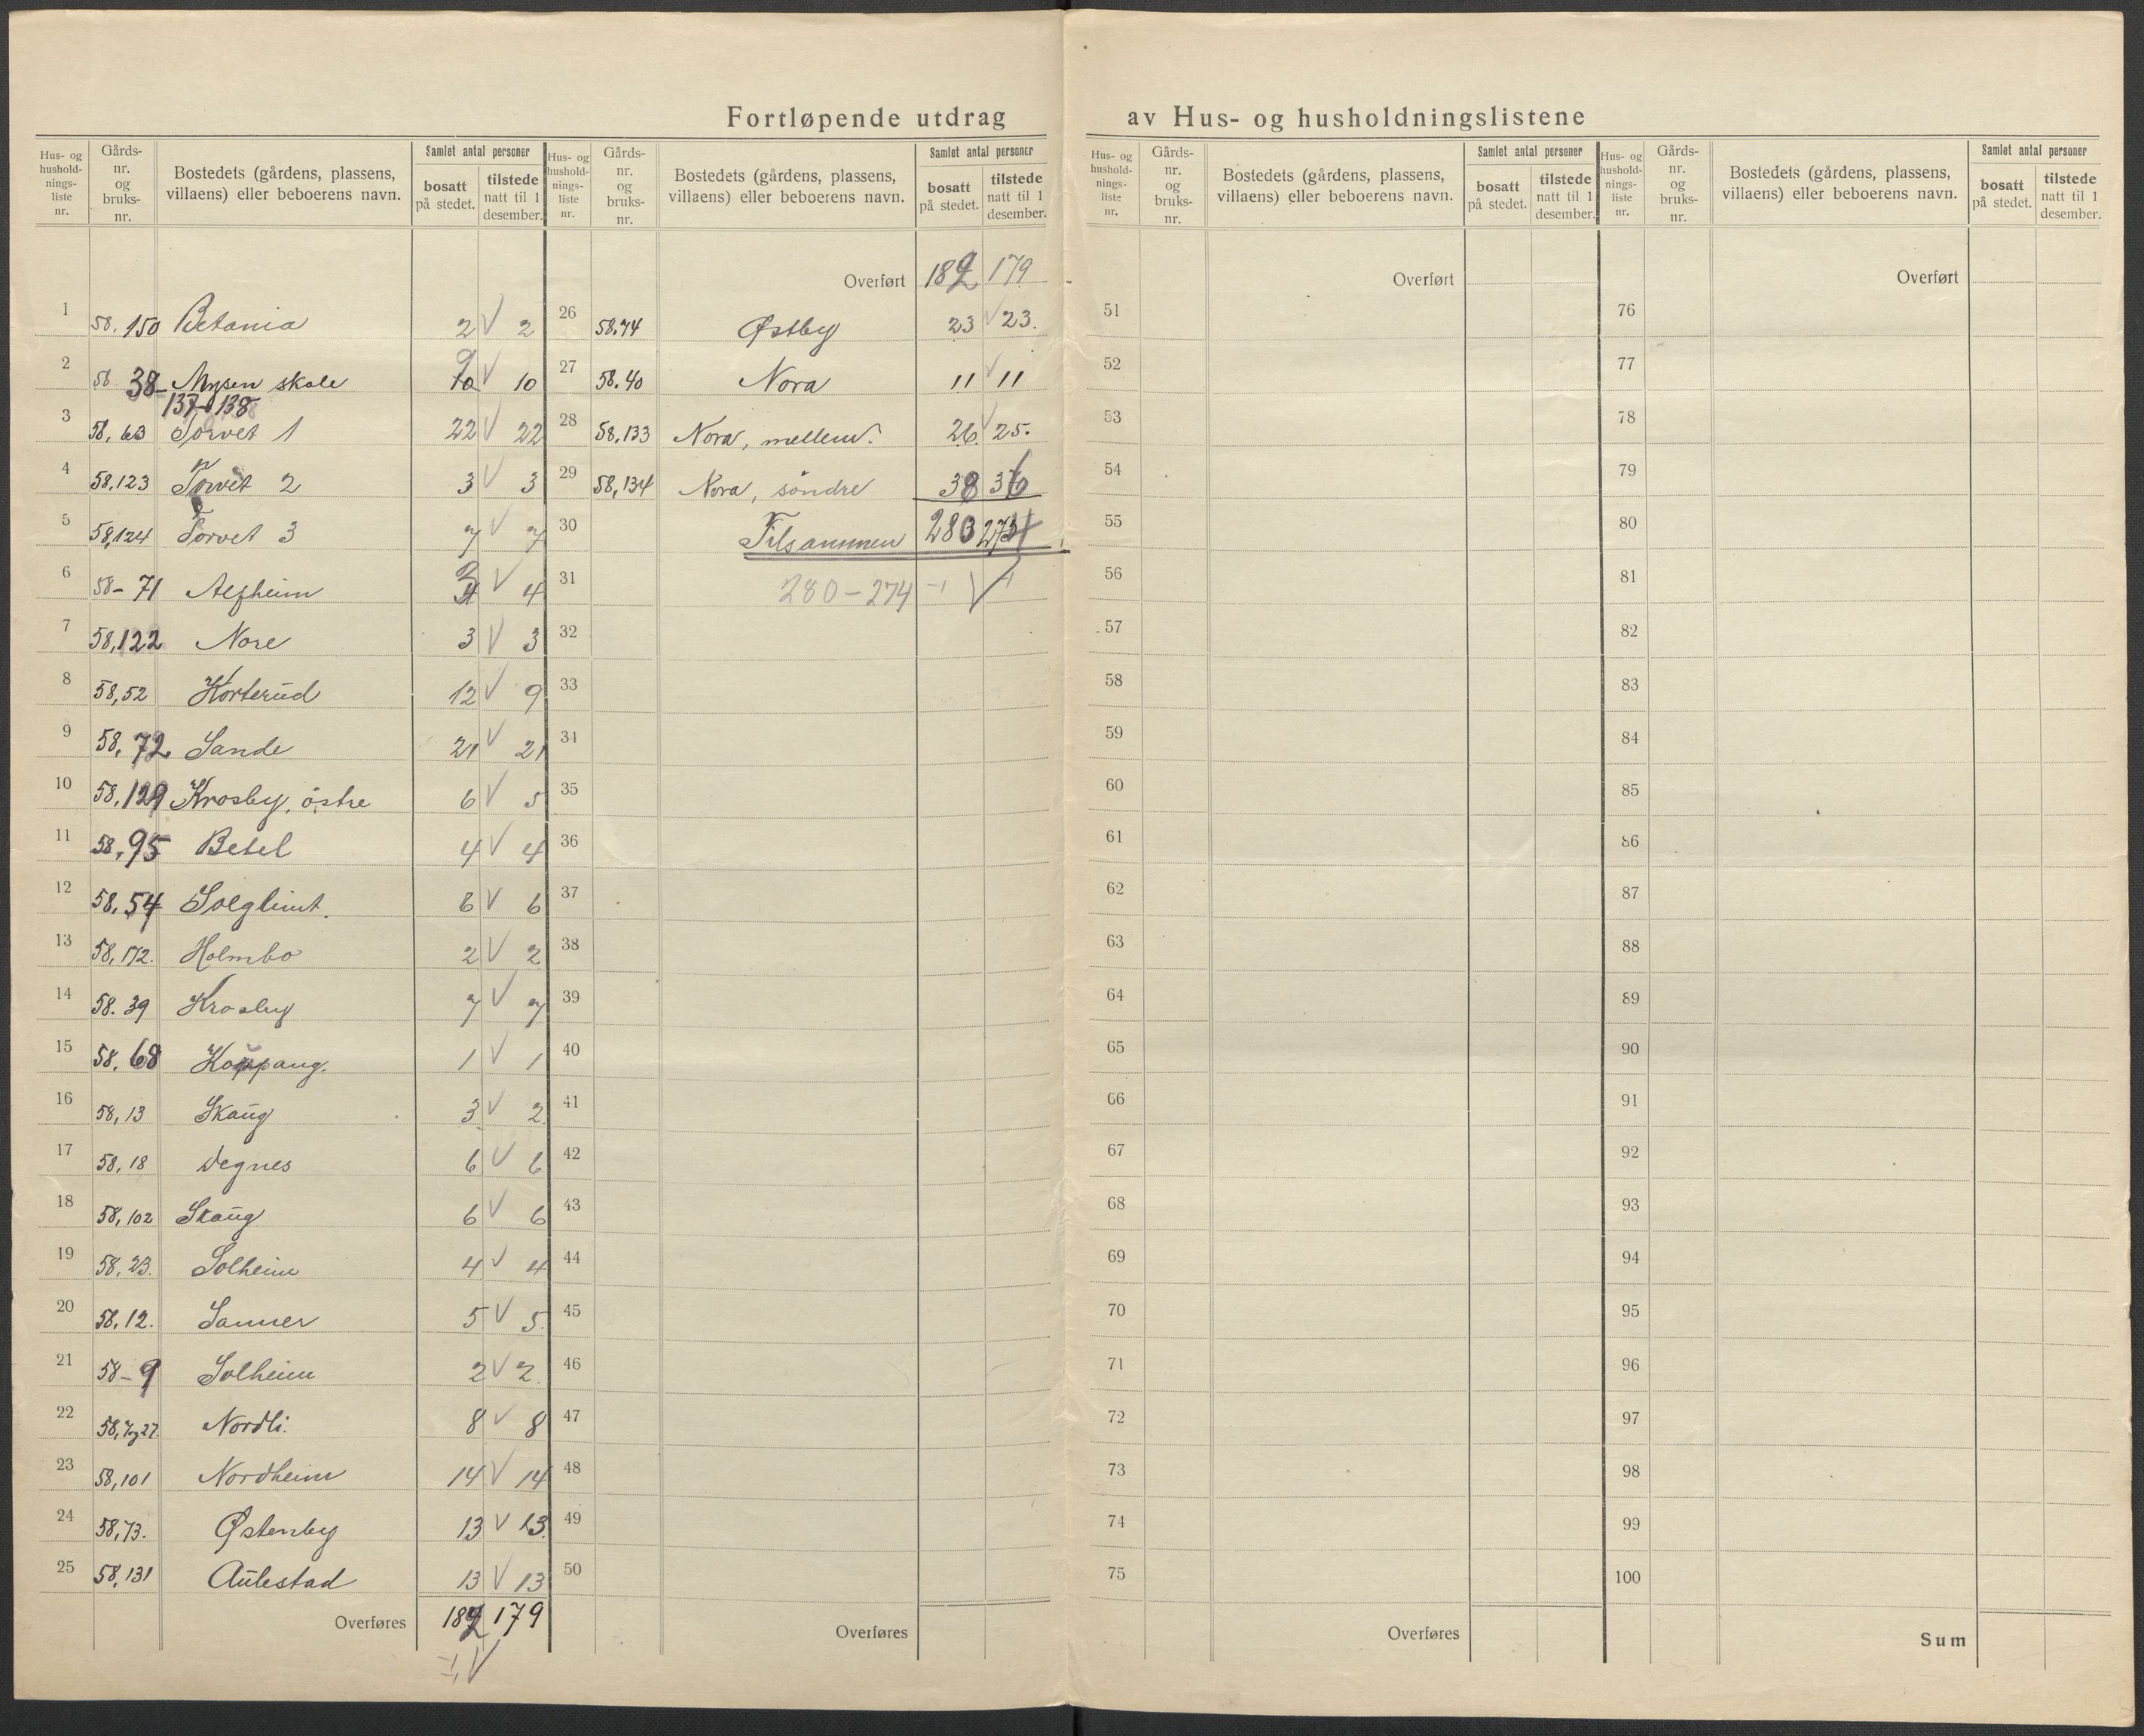 Fortløpende utdrag av Hus- og husholdningslistene
Hus- og hushold-nings-liste nr. Gårds-nr. og bruks-nr. Bostedets (gårdens, plassens, villaens) eller beboerens navn. Samlet antal personer bosatt på stedet. tilstede natt til 1 desember.
1 58. 150 Betania 2 V 2
2 58 38- Mysen skole 10 V 10
137- 138
3 58, 63 Torvet 1 22 V 22
4 58,123 Torvet 2 3 V 3
5 58,124 Torvet 3 7 V 7
6 58- 71 3 V 4
7 58,122 Nore 3 V 3
8 58,52 Korterud 12 V 9
9 58, 72 Sande 21 V 21
10 58,129 Krosby, østre 6 V 5
11 58, 95 Betel 4 V 4
12 58,54 Solglimt. 6 V 6
13 58,172. Holmbo 2 V 2
14 58. 39 Krosby 7 V 7
15 58. 68 Koppang. 1 V 1
16 58,13 Skaug 3 V 2
17 58,18 Degnes 6 V 6
18 58,102 Skaug 6 V 6
19 58,23. Solheim 4 V 4
20 58,12. Sanner 5 V 5
21 58-9 Solheim 2 V 2.
22 58, 27 Nordli. 8 V 8
23 58,101 Nordheim 14 V 14
24 58,73. Østenby 13 V 13.
25 58,131 Aulestad 13 V 13
Overføres 182 179
V
Hus- og hushold-nings-liste nr. Gårds-nr. og bruks-nr. Bostedets (gårdens, plassens, villaens) eller beboerens navn. Samlet antal personer bosatt på stedet. tilstede natt til 1 desember.
Overført 182 179
26 58.74 Østby 23 V 23.
27 58.40 Nora 11 V 11
28 58,133 Nora, mellem. 26 V 25.
29 58,134 Nora, søndre 38 36
30 Tilsammen 280 274
31 280-274 V
32
33
34
35
36
37
38
39
40
41
42
43
44
45
46
47
48
49
50
Overføres
Hus- og hushold-nings-liste nr. Gårds-nr. og bruks-nr. Bostedets (gårdens, plassens, villaens) eller beboerens navn. Samlet antal personer bosatt på stedet. tilstede natt til 1 desember.
Overført
51
52
53
54
55
56
57
58
59
60
61
62
63
64
65
66
67
68
69
70
71
72
73
74
75
Overføres
Hus- og hushold-nings-liste nr. Gårds-nr. og bruks-nr. Bostedets (gårdens, plassens, villaens) eller beboerens navn. Samlet antal personer bosatt på stedet. tilstede natt til 1 desember.
Overført
76
77
78
79
80
81
82
83
84
85
86
87
88
89
90
91
92
93
94
95
96
97
98
99
100
Sum